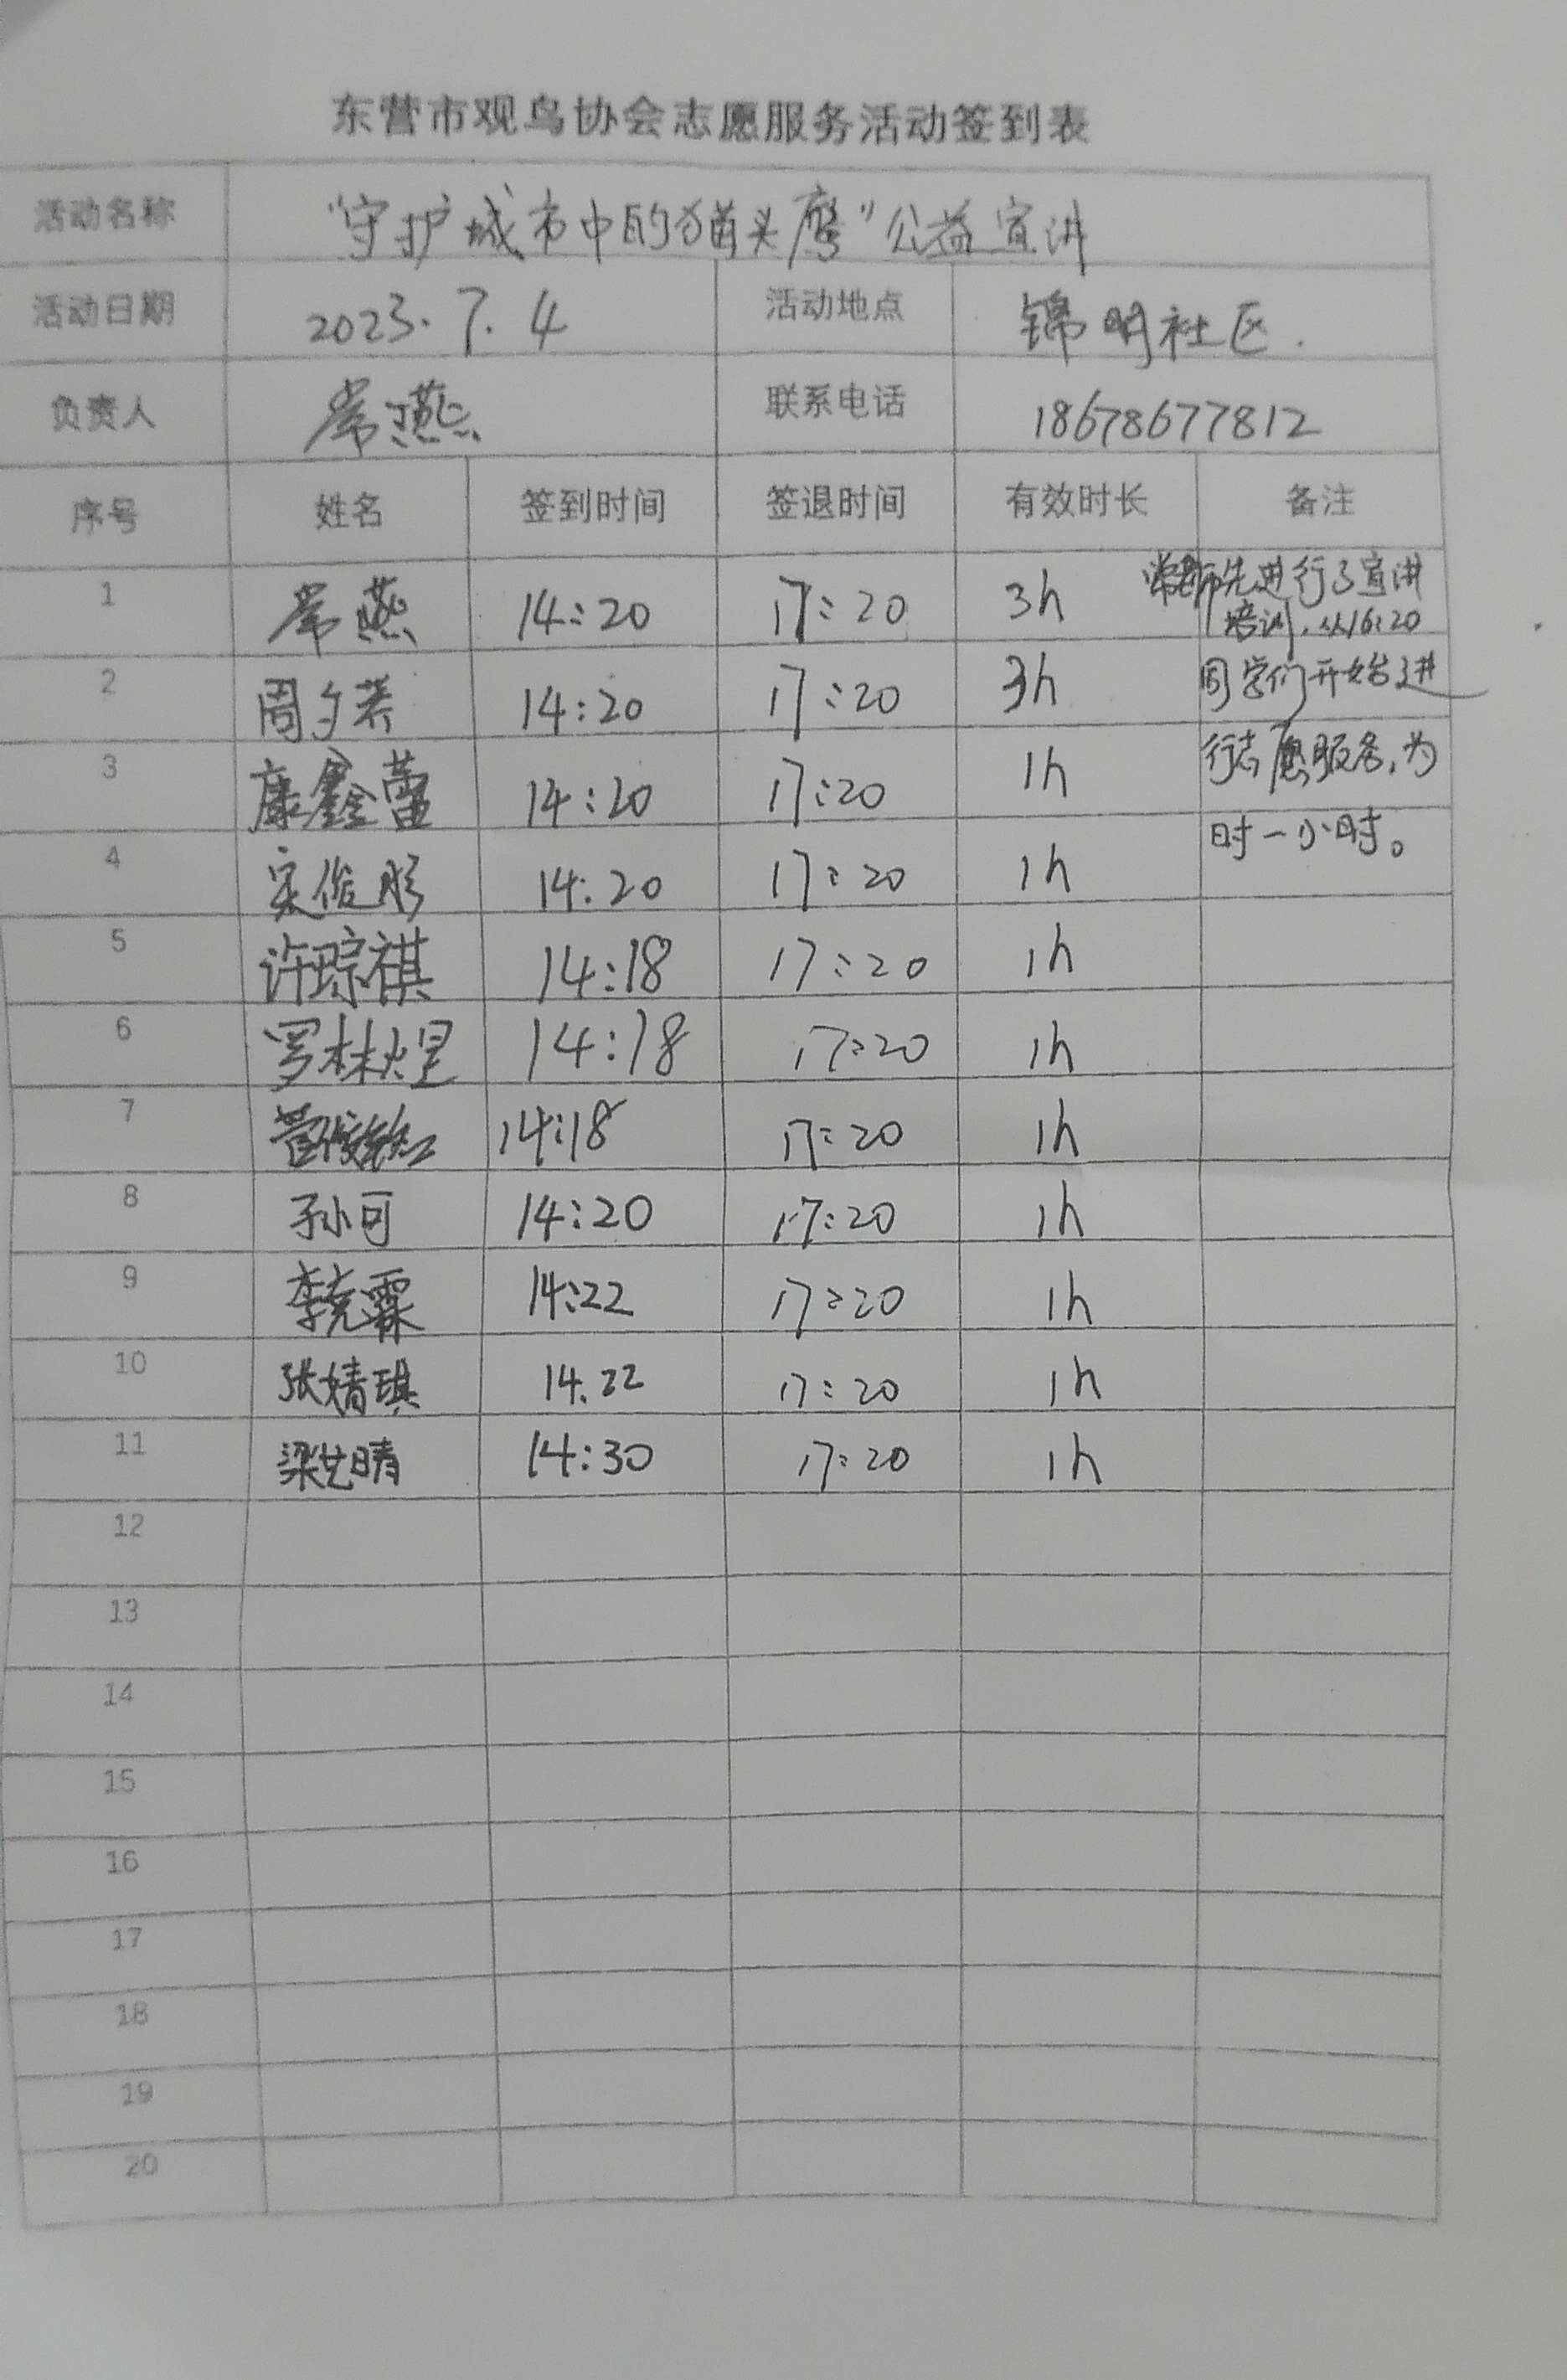 东营市观鸟协会志愿服务活动签到表
活动名称 “守护城市中的猫头鹰”公益宣讲
活动日期 2023.7.4 活动地点 锦明社区.
负责人 常燕 联系电话 18678677812
序号 姓名 签到时间 签退时间 有效时长 备注
1 常燕 14:20 17:20 3h 常老师先进行了宣讲
培训,从16:20
2 周夕 14:20 17:20 3h 同学们开始进
3 康鑫蕾 14:20 17:20 1h 行志愿服务,为
4 俊彤 14:20 17:20 1h 时一小时。
5 许琮祺 14:18 17:20 1h
6 罗林煜 14:18 17:20 1h
7 14:18 17:20 1h
8 孙小可 14:20 17:20 1h
9 李克霖 14:22 17:20 1h
10 张婧琪 14.22 17:20 1h
11 梁艺晴 14:30 17:20 1h
12
13
14
15
16
17
18
19
20